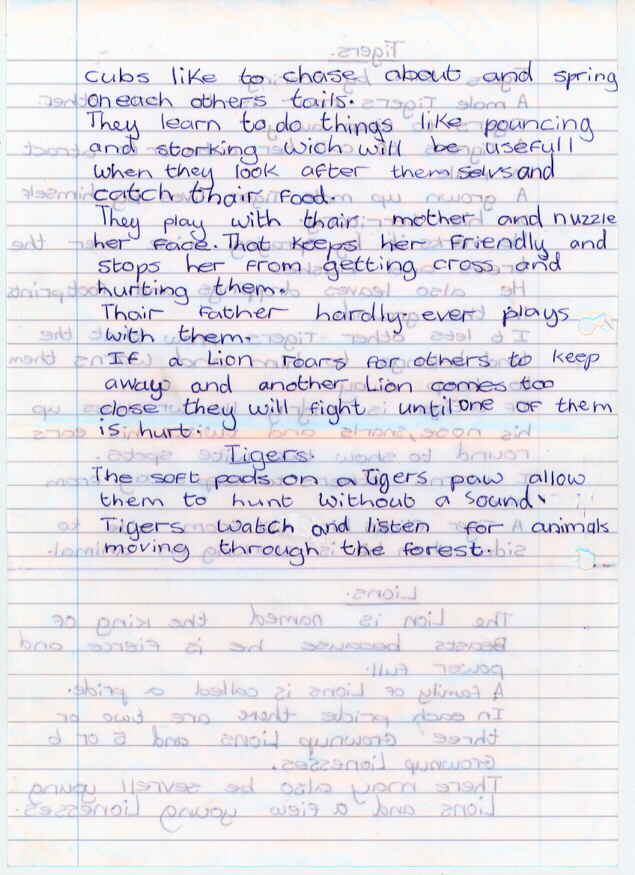 cubs like to chase about and spring
on each others tails.
They learn to do things like pouncing
and storking wich will be usefull
when they look after themselvs and
catch thair food.
They play with thair mother and nuzzle
her face. That keeps her friendly and
stops her from getting cross and
hurting them.
Thair father hardly ever plays
with them.
If a Lion roars for others to keep
away and another Lion comes too
close they will fight until one of them
is hurt.
Tigers.
The soft pads on a Tigers paw allow
them to hunt without a sound.
Tigers watch and listen for animals
moving through the forest.